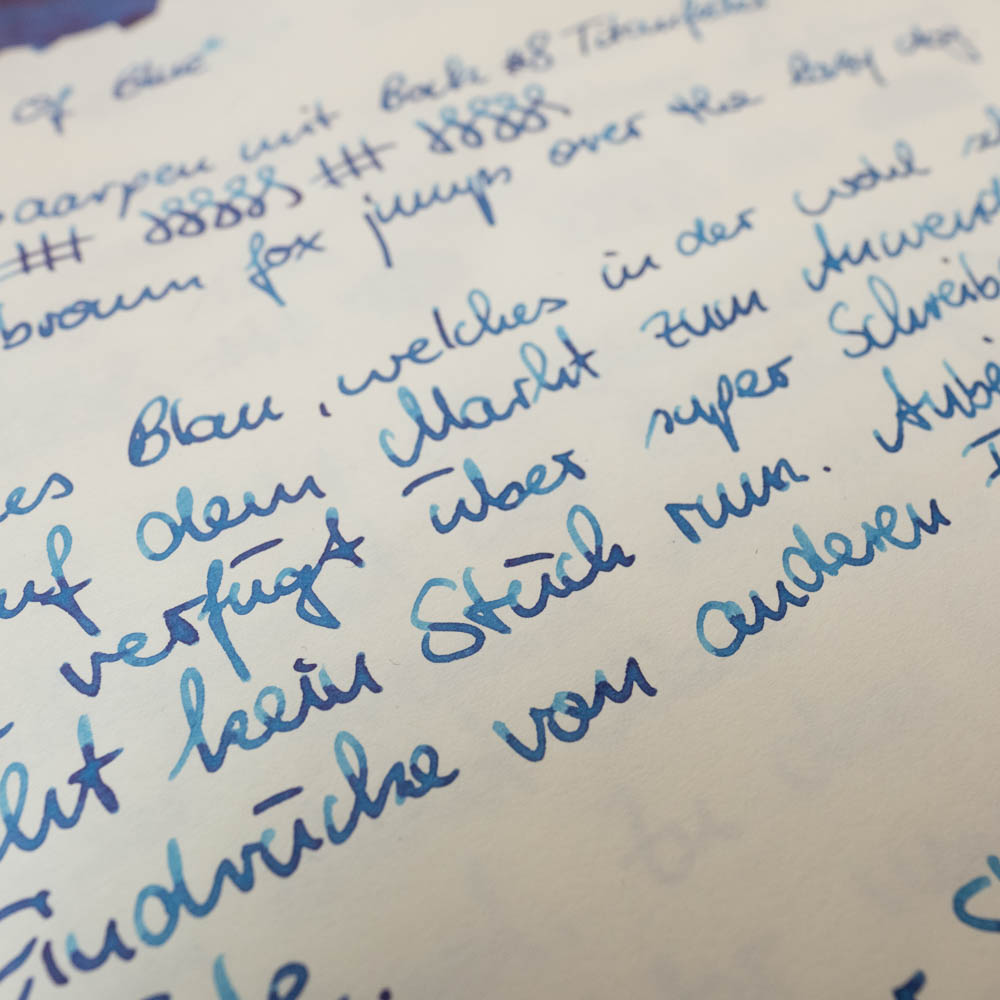 of Blue"
aarpen mit Bock #8 Titanfeder
brown fox jumps over the lazy dog
es Blau, welches in der wohl
auf dem Markt zum Anwend
verfügt über super Schreib
kein Stück run. Anbei
Eindrücke von anderen